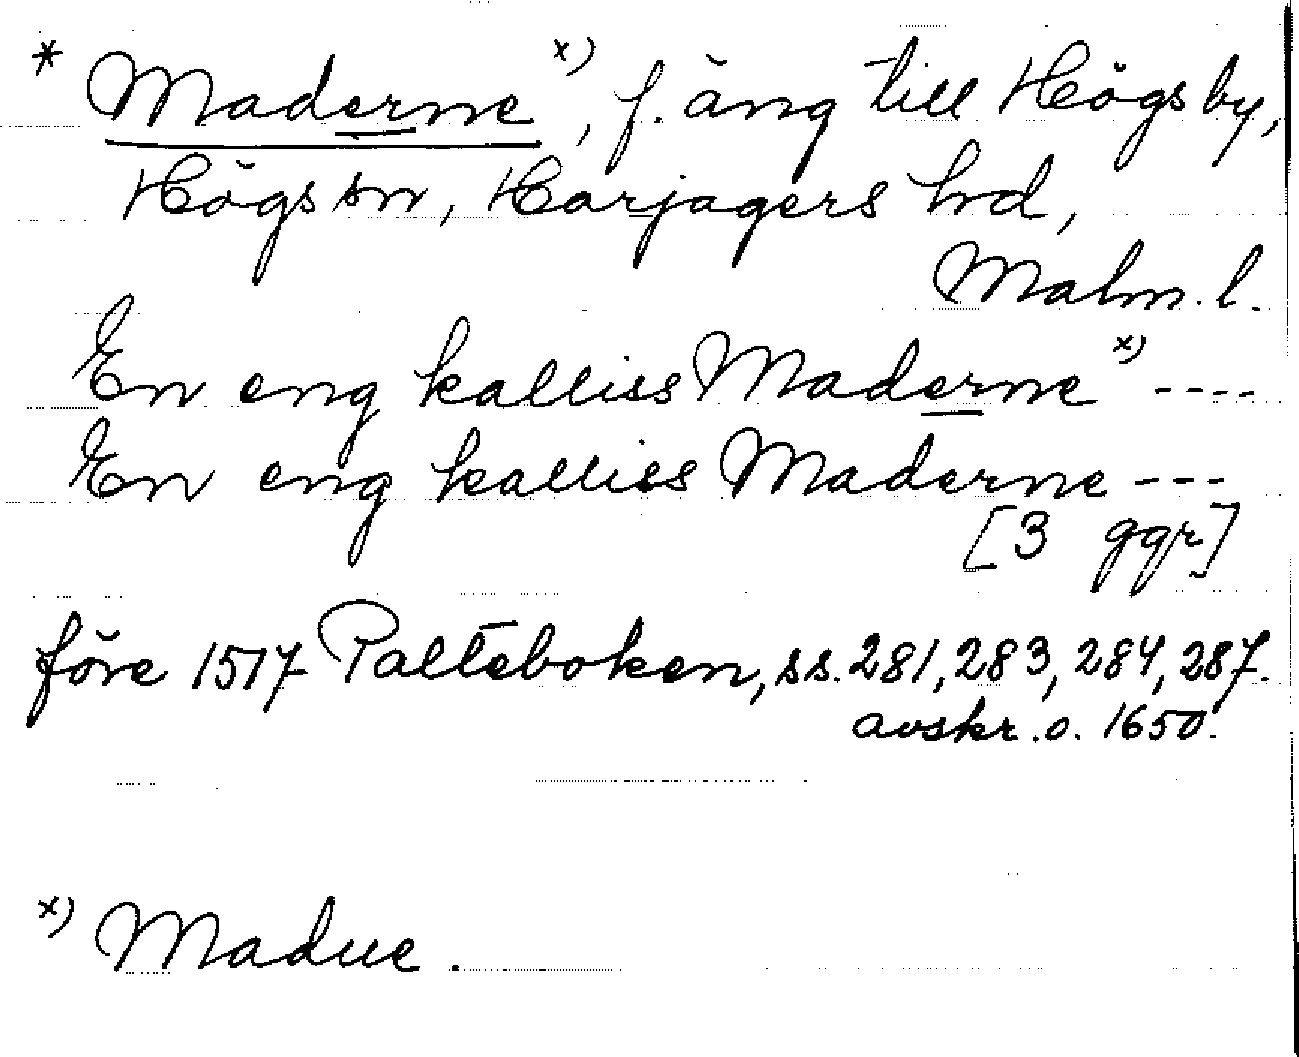 * Maderne x), f. äng till Högs by,
Högs sn, Harjagers hd,
Malm. l.
En eng kalliss Maderne x) ----
En eng kalliss Maderne ---
[3 ggr]
före 1517 Palteboken, ss. 281, 283, 284, 287.
avskr. o. 1650.
x) Madue.